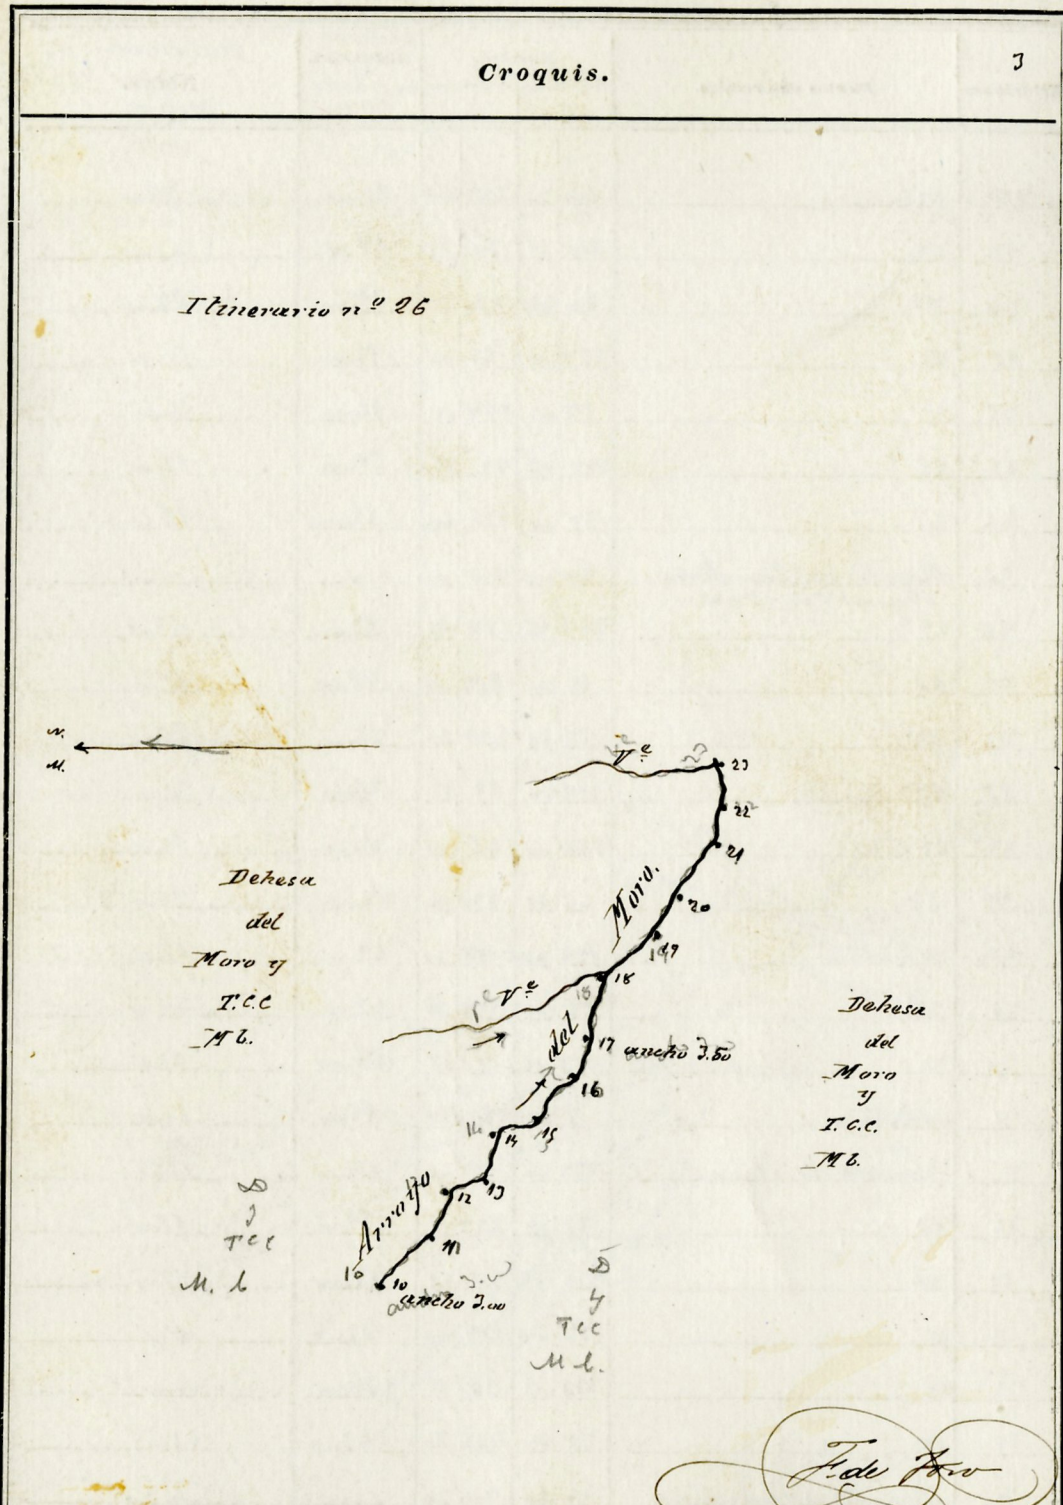 Croquis.
3
Itinerario nº 26
N.
M.
Vᵉ
23
22
21
20
19
18
Vᵉ
17 ancho 3.50
16
15
14
13
12
11
10
ancho 3.00
Arroyo del Moro.
Dehesa
del
Moro y
T.C.C
M b.
Dehesa
del
Moro
y
T.C.C.
M b.
D
y
TCC
M. b
D
y
TCC
M b.
F. de